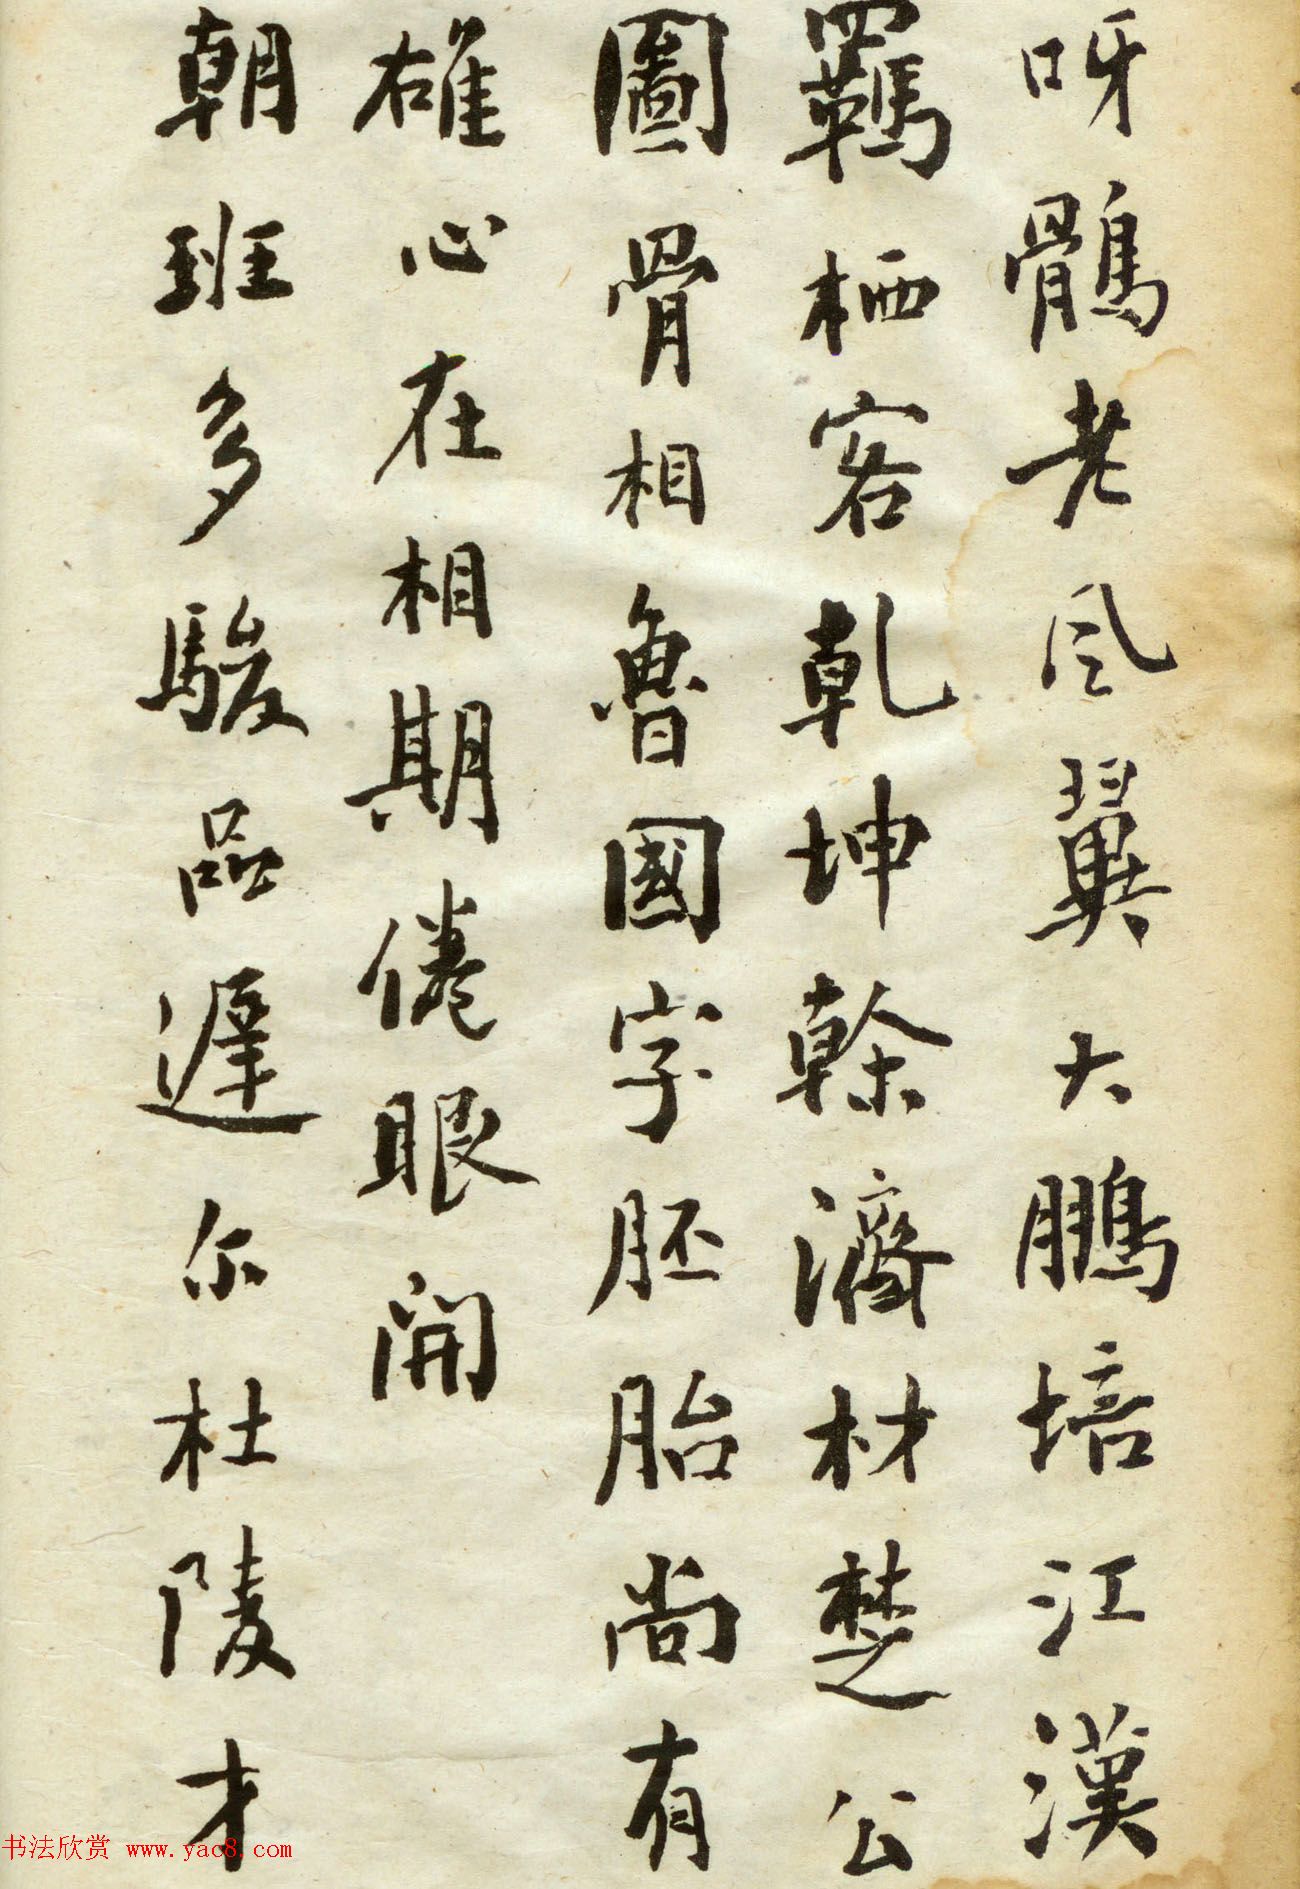 呀鶻老风翼大鹏培江漢
羈栖客乾坤榦濟材楚公
圖骨相魯國字胚胎尚有
雄心在相期倦眼開
朝班多駿品遲尔杜陵才
书法欣赏 www.yac8.com